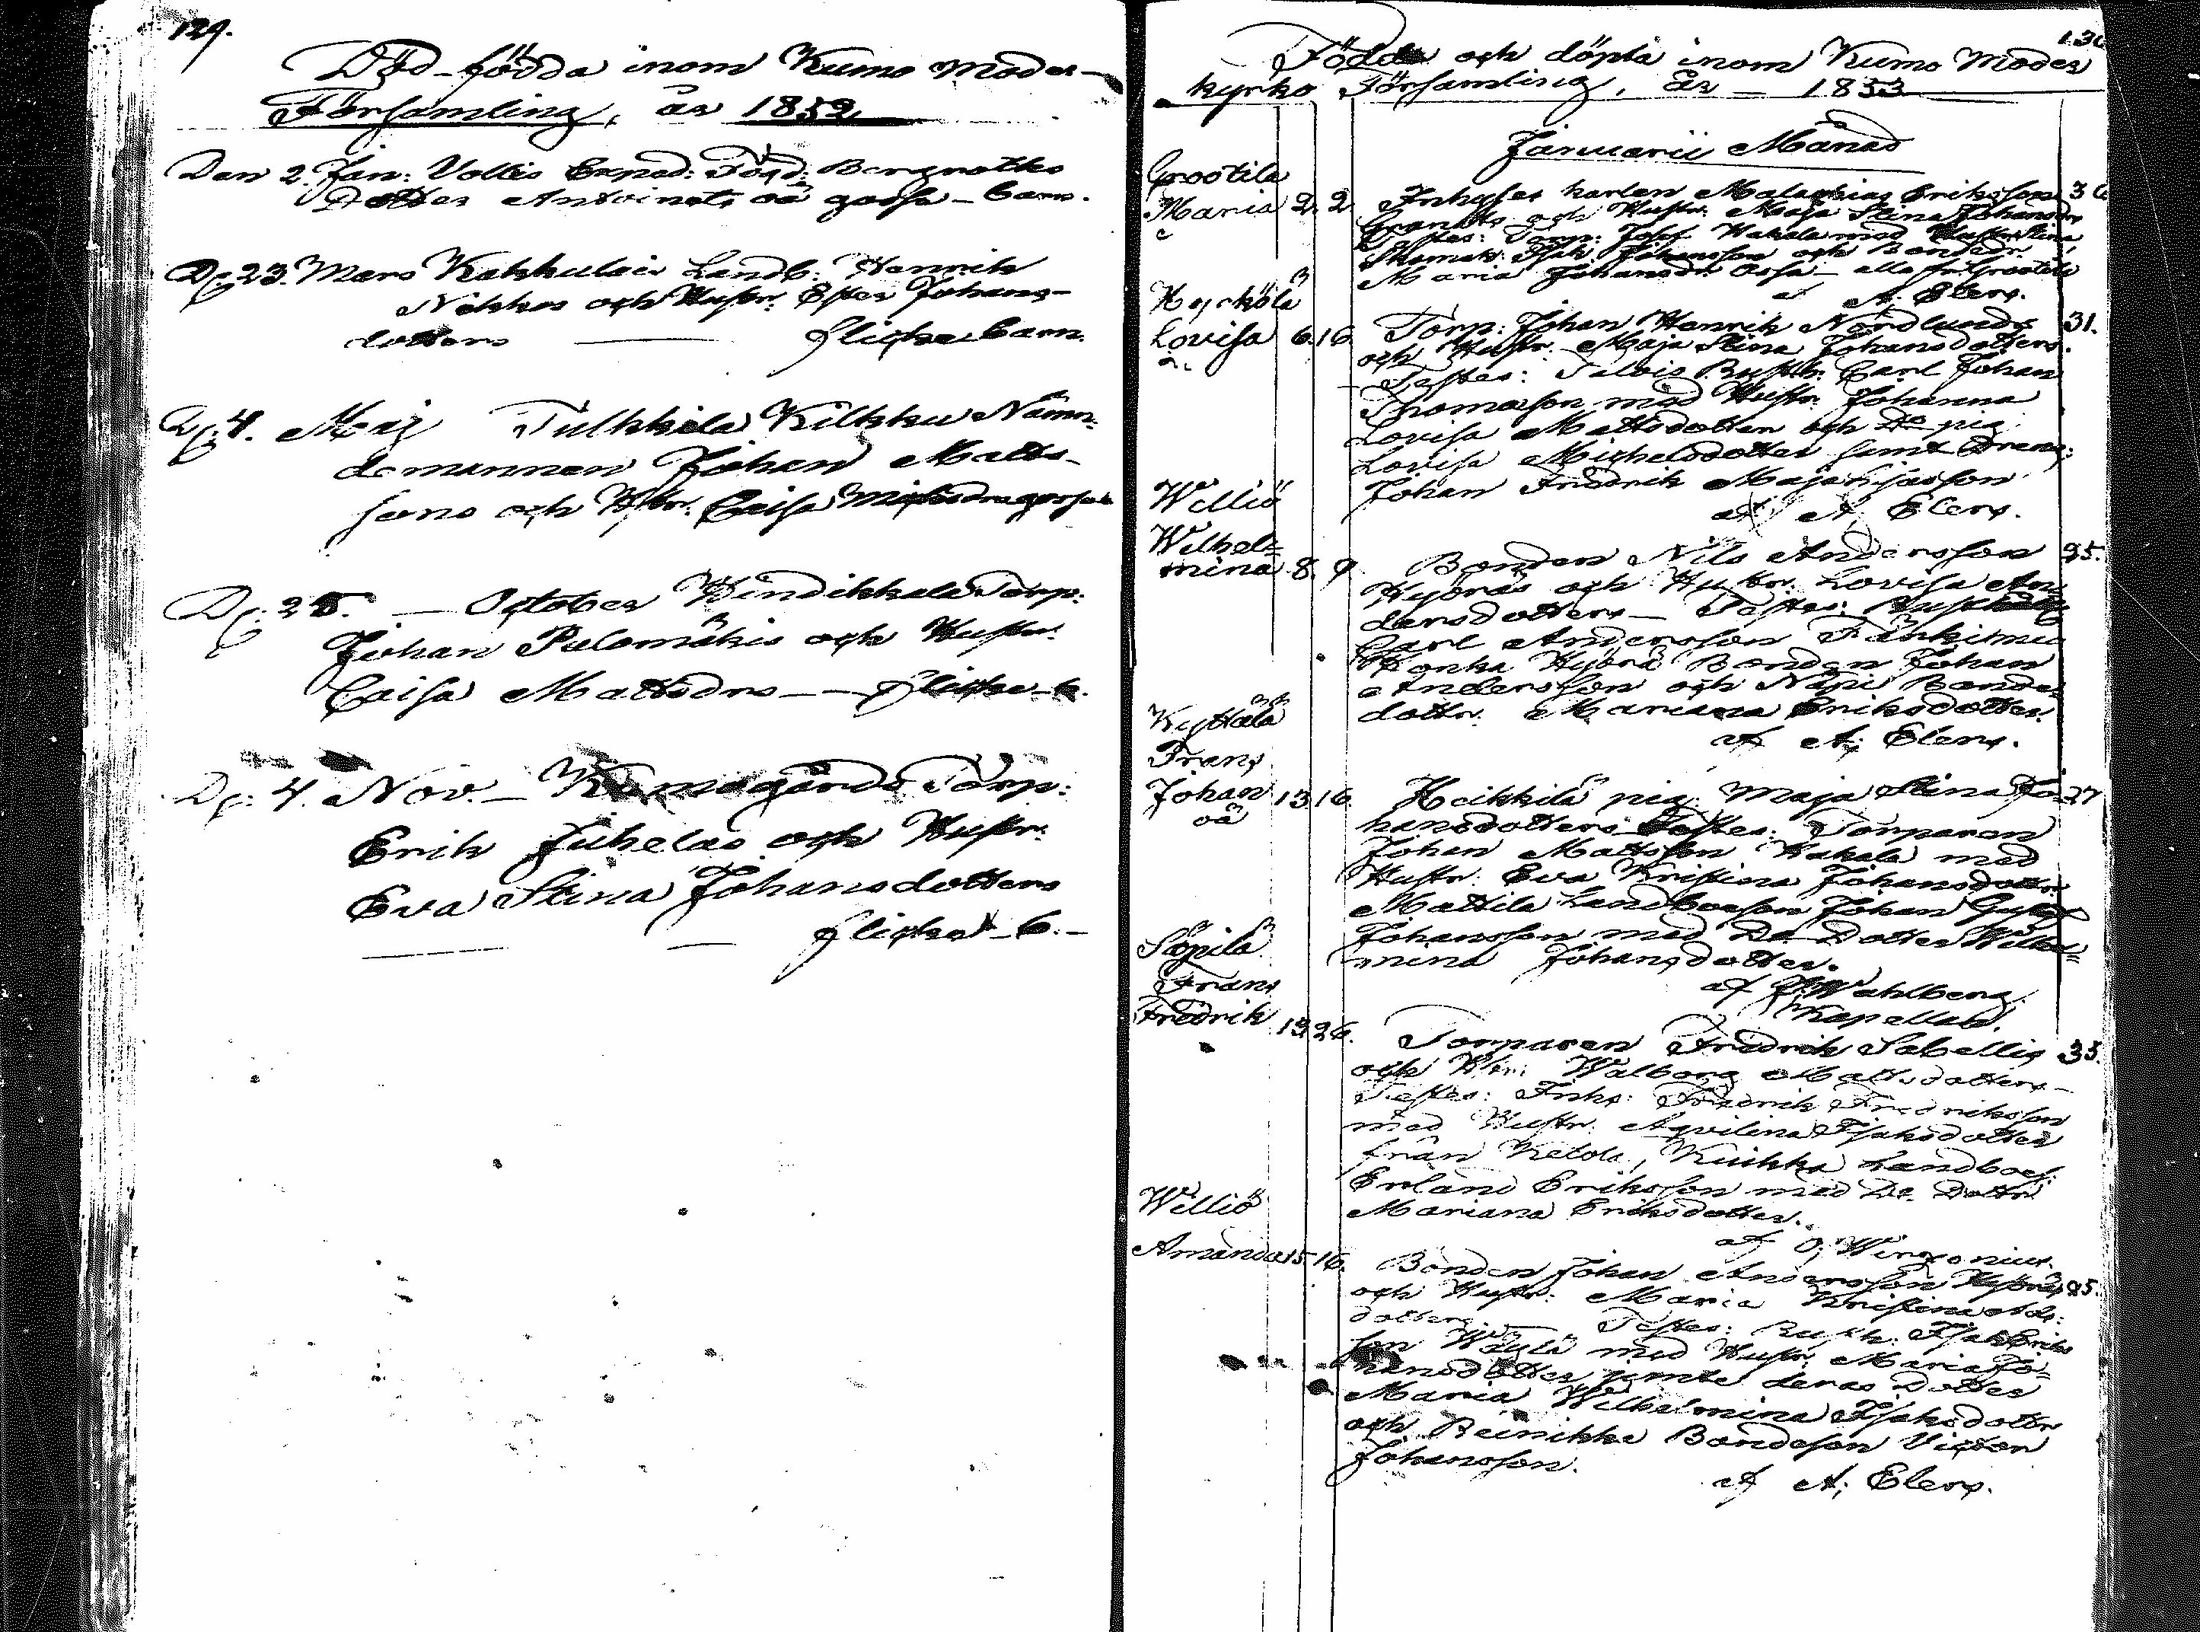 129.
Död-födda inom Kumo Moder-
Församling, år 1852
Den 2. Jan: Vallis Exped: Fogd: Bergroths
Dotter Antoinets oä gosse-barn.
Dn 23. Mars Kakkulais Landb: Henrik
Nikkes och Hustr: Ester Johans-
dotters flicke barn.
Dn 4. Maj Tulkkila Kilkku Nämn-
demannen Johan Matts-
sons och Hstr. Caisa
Dn 25. October Hindikkala Torp:
Johan Pelomäkis och Hustr.
Caisa Mattsdrs flicke-b.
Dn 4. Nov. Kumogårds Torp:
Erik Juhelas och Hustr:
Eva Stina Johansdotters
flicke-b.
130
Födde och döpta inom Kumo Moder
kyrko Församling, År 1853
Januarii Månad
Grootila
Maria 2. 2 Inhyses karlen Malachias Eriksson 36
Granits och Hustr. Maja Stina Johansdrs
Testes: Torp: Josef Hakala med Hustr Stina
Isak Johansson och Bondedr.
Maria Johansdr Ossa alla frå Grootila
af A. Elers.
Kyrkölä
Lovisa 6. 16 Torp: Johan Henrik Nordlunds 31.
och Hustr. Maja Stina Johansdotters.
Testes: Talois Rusth: Carl Johan
Thomasson med Hustr. Johanna
Lovisa Mattsdotter och Do pig.
Lovisa Michelsdotter samt Dräng:
Johan Fredrik
af A. Elers.
Williö
Wilhel=
mina 8. 9 Bonden Nils Andersson 25.
Hyöräs och Hustr. Lovisa An
dersdotters Testes:
Carl Andersson
Hyörä Bonden Johan
Andersson och Näpi Bonde
dottr. Mariana Eriksdotter.
af A; Elers.
Kyttälä
Frans
Johan 13. 16. Heikkilä pig. Maja Stina Jo- 27
oä hansdotters Testes: Torparen
Johan Mattsson Hakala med
Hustr. Eva Kristina Johansdottr.
Mattila Landboeson Johan Gustaf
Johansson med Do Dotter Wilhel=
mina Johansdotter.
af Wahlberg.
Kapellan.
Säpilä
Frans
Fredrik 19. 26. Torparen Fredrik Sabellis 33.
och Hstr: Walborg Mattsdotters
Testes: Inhs: Fredrik Fredriksson
med Hustr. Aqvilina Isaksdotter
från Ketola, Kuikka Landboes:
Erland Eriksson med Do. Dottr
Mariana Eriksdotter.
af
Williö
Amanda 15. 16. Bonden Johan Andersson Hyöräs 25.
och Hustr: Maria Kristina Ads:
dotters Testes: Rusth: Isak Eriks
son Wäylä med Hustr. Maria Jo-
hansdotter jemte deras Dotter
Maria Wilhelmina Isaksdotter
och Reinikka Bondeson Victor
Johansson.
af A; Elers.